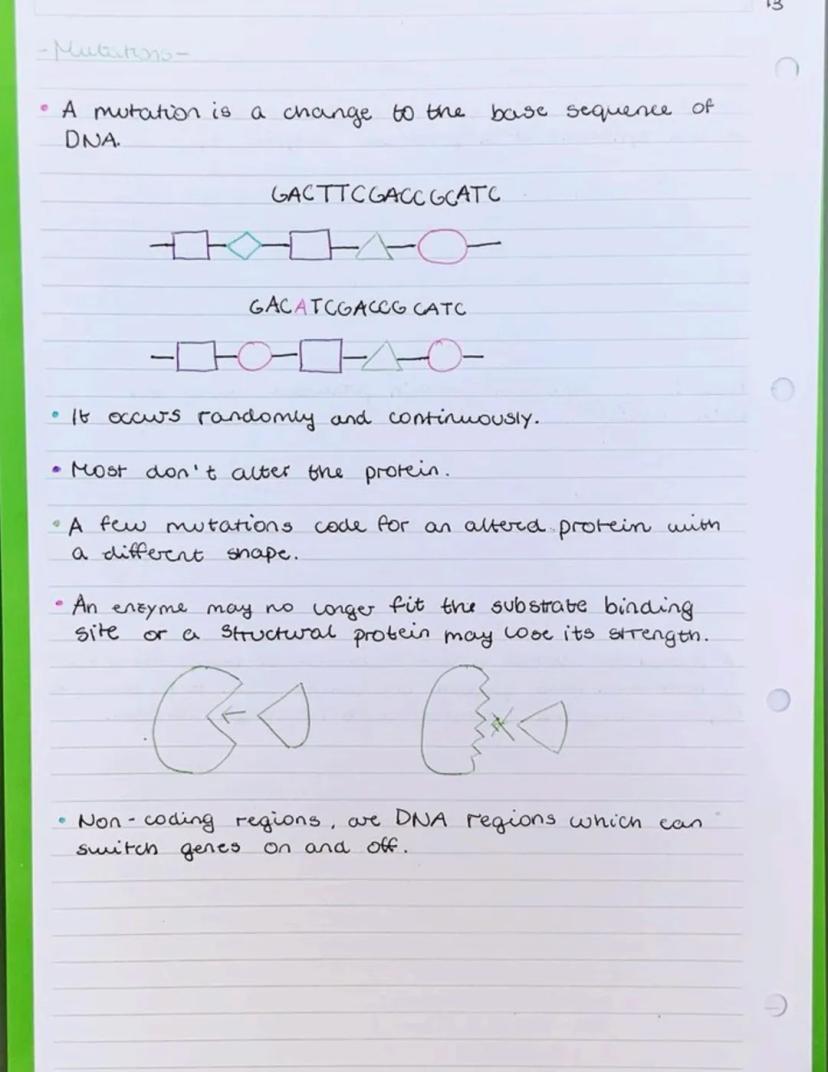 13
-Mutations-
• A mutation is a change to the base sequence of
DNA.
GACTTCGACCGCATC
GACATCGACCG CATC
• It occurs randomly and continuously.
• Most don't alter the protein.
• A few mutations code for an altered protein with
a different shape.
• An enzyme may no longer fit the substrate binding
site or a structural protein may lose its strength.
• Non-coding regions, are DNA regions which can
switch genes on and off.